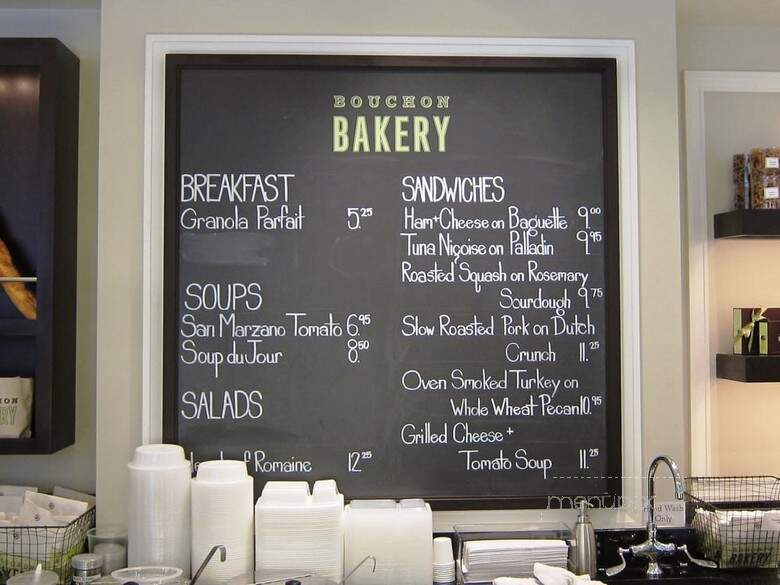 BOUCHON
BAKERY
BREAKFAST
Granola Parfait 5.25
SOUPS
San Marzano Tomato 6.95
Soup du Jour 8.50
SALADS
of Romaine 12.25
SANDWICHES
Ham+Cheese on Baguette 9.00
Tuna Niçoise on Palladin 9.95
Roasted Squash on Rosemary
Sourdough 9.75
Slow Roasted Pork on Dutch
Crunch 11.25
Oven Smoked Turkey on
Whole Wheat Pecan 10.95
Grilled Cheese +
Tomato Soup 11.25
menupix
Hand Wash
Only